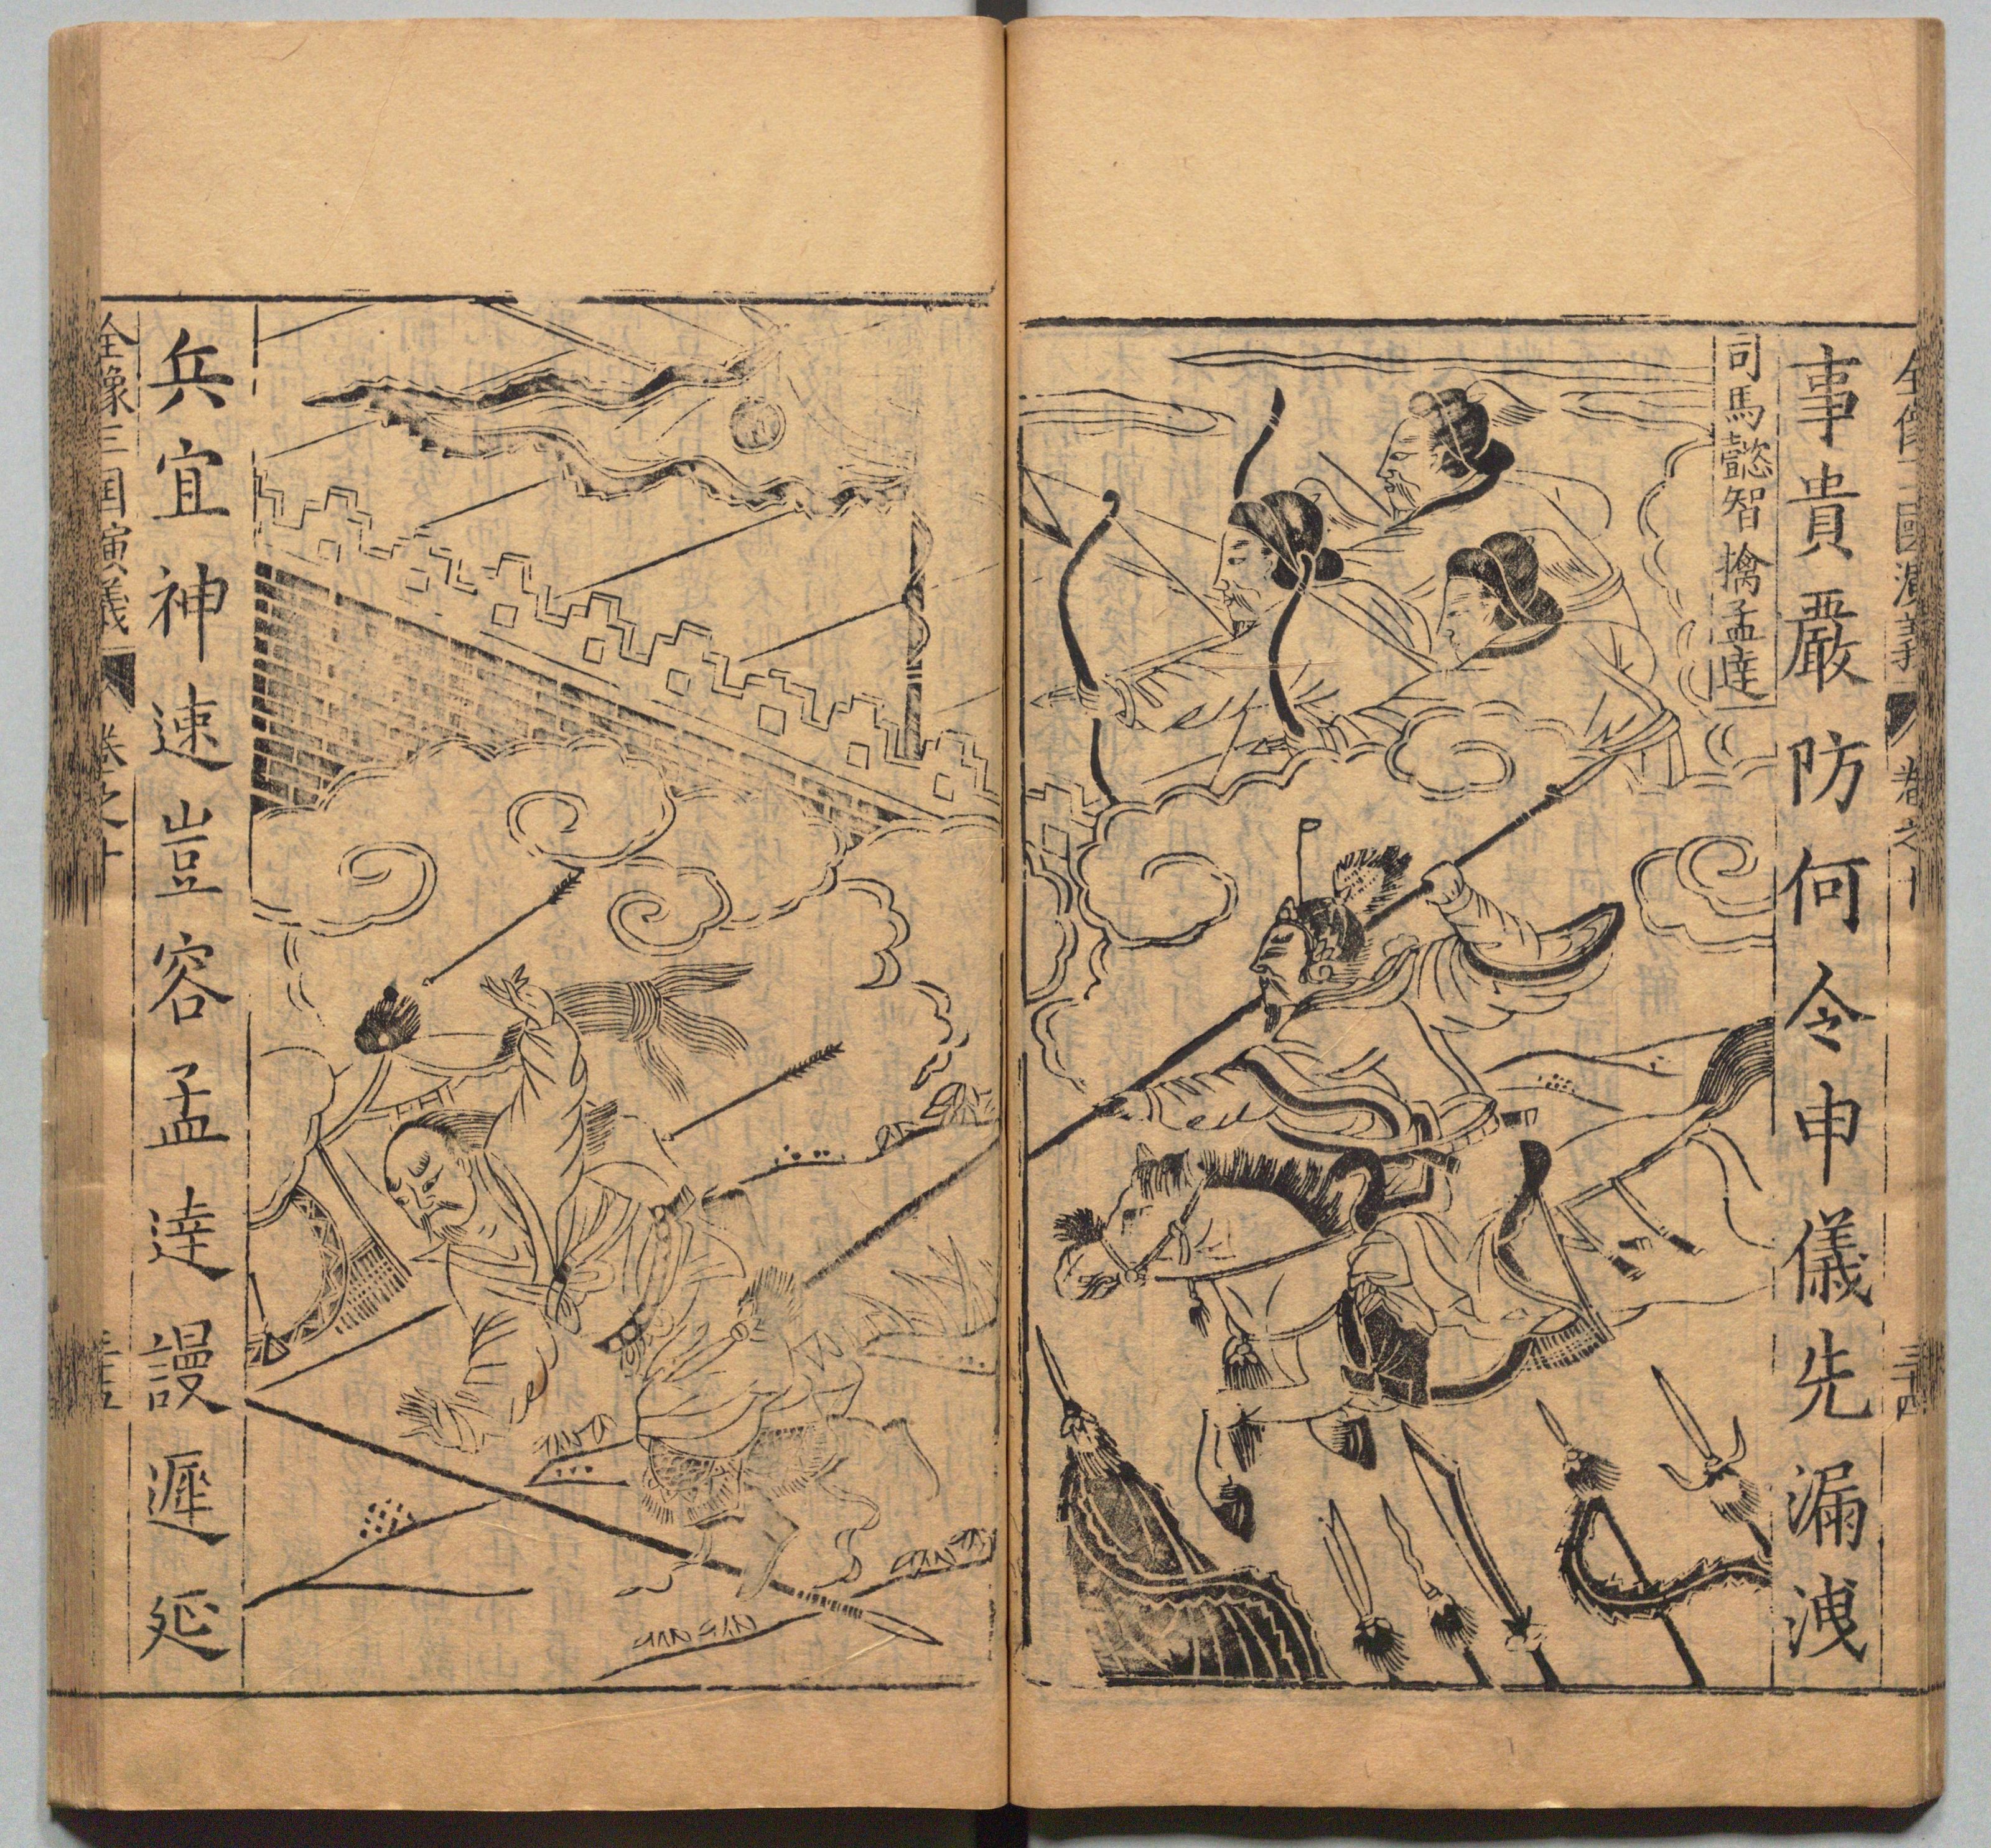 全像三國演義
卷之十
事貴嚴防何令申儀先漏洩
司馬懿智擒孟達
兵宜神速豈容孟達謾遲延
全像三国演義
卷之十